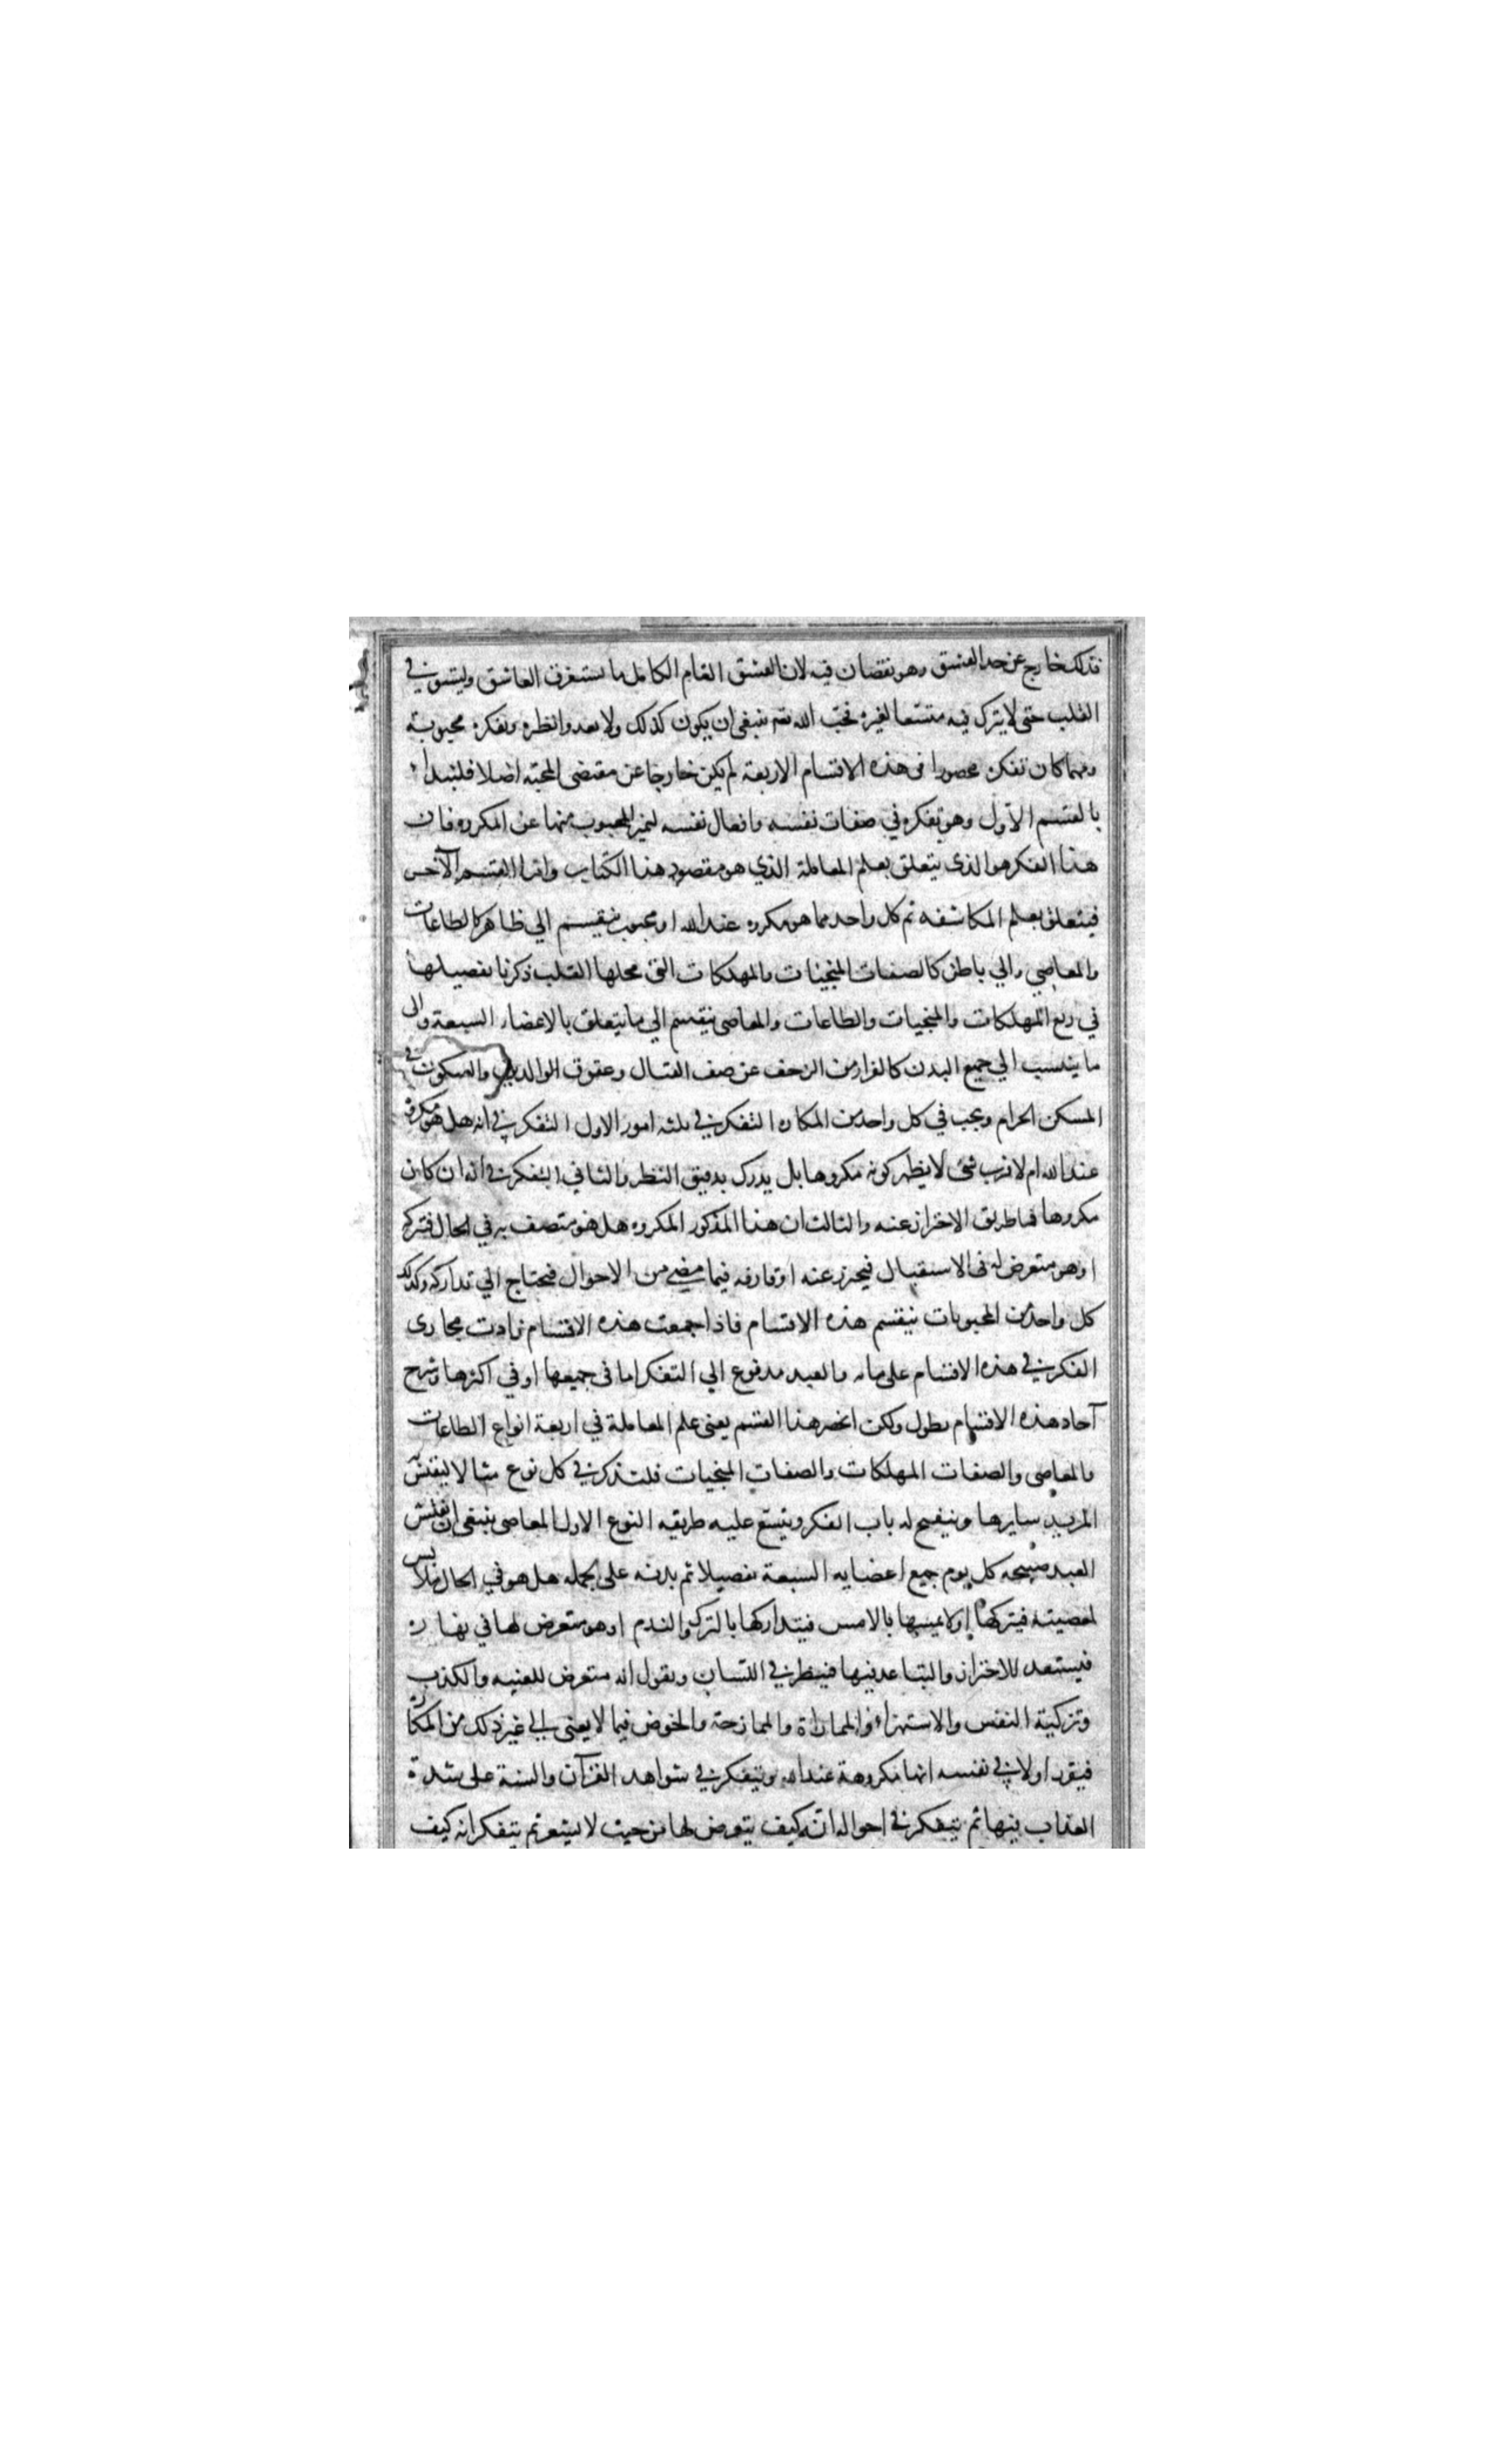 فذلك خارج عن حد العشق وهو نقصان فيه لان العشق التام الكامل ما يستغرق العاشق ويستوفي
القلب حتى لا يترك فيه متسعا لغيره فمحب الله تعه ينبغى ان يكون كذلك ولا يعدوا نظره وتفكره محبوبه
ومهما كان تفكره محصورا فى هذه الاقسام الاربعة لم يكن خارجا عن مقتضى المحبة اصلا فلنبدا
بالقسم الاول وهو تفكره في صفات نفسه وافعال نفسه ليميز المحبوب منها عن المكروه فان
هذا الفكر هو الذى يتعلق بعلم المعاملة الذي هو مقصود هذا الكتاب واما القسم الآخر
فيتعلق بعلم المكاشفه ثم كل واحد مما هو مكروه عند الله او محبوب ينقسم الي ظاهر كالطاعات
والمعاصي والي باطن كالصفات المنجيات والمهلكات التى محلها القلب ذكرنا تفصيلها
في ربع المهلكات والمنجيات والطاعات والمعاصى ينقسم الي ما يتعلق بالاعضاء السبعة والى
ما ينسب الي جميع البدن كالفرار من الزحف عن صف القتال وعقوق الوالدين والسكون في
المسكن الحرام ويجب في كل واحد من المكاره التفكر في ثلثه امور الاول التفكر في انه هل هو مكروه
عند الله ام لا فرب شئ لا يظهر كونه مكروها بل يدرك بدقيق النظر والثاني التفكر في انه ان كان
مكروها فما طريق الاحتراز عنه والثالث ان هذا المذكور المكروه هل هو متصف به في الحال فيتركه
او هو متعرض له فى الاستقبال فيحترز عنه او قارفه فيما مضى من الاحوال فيحتاج الي تداركه وكذلك
كل واحد من المحبوبات ينقسم هذه الاقسام فاذا جمعت هذه الاقسام زادت مجارى
الفكر في هذه الاقسام على مايه والعبد مدفوع الي التفكر اما فى جميعها او في اكثرها وشرح
آحاد هذه الاقسام يطول ولكن انحصر هذا القسم يعنى علم المعاملة في اربعة انواع الطاعات
والمعاصى والصفات المهلكات والصفات المنجيات فلنذكر في كل نوع مثالا ليقس
المريد سايرها وينفتح له باب الفكر ويتسع عليه طريقه النوع الاول المعاصى ينبغى ان يفتش
العبد صبيحه كل يوم جميع اعضايه السبعة تفصيلا ثم بدنه على الجمله هل هو في الحال ملابس
لمعصيته فيتركها او لابسها بالامس فيتداركها بالترك والندم او هو متعرض لها في نهاره
فيستعد للاحتراز والتباعد عنها فينظر في اللسان ويقول انه متعرض للغيبه والكذب
وتزكية النفس والاستهزاء والمماراة والممازحة والخوض فيما لا يعنى الي غير ذلك من المكاره
فيقرر اولا في نفسه انها مكروهة عند الله ويتفكر في شواهد القرآن والسنة على شدة
العذاب فيها ثم يتفكر في احواله انه كيف يتعرض لها من حيث لا يشعر ثم يتفكر انه كيف